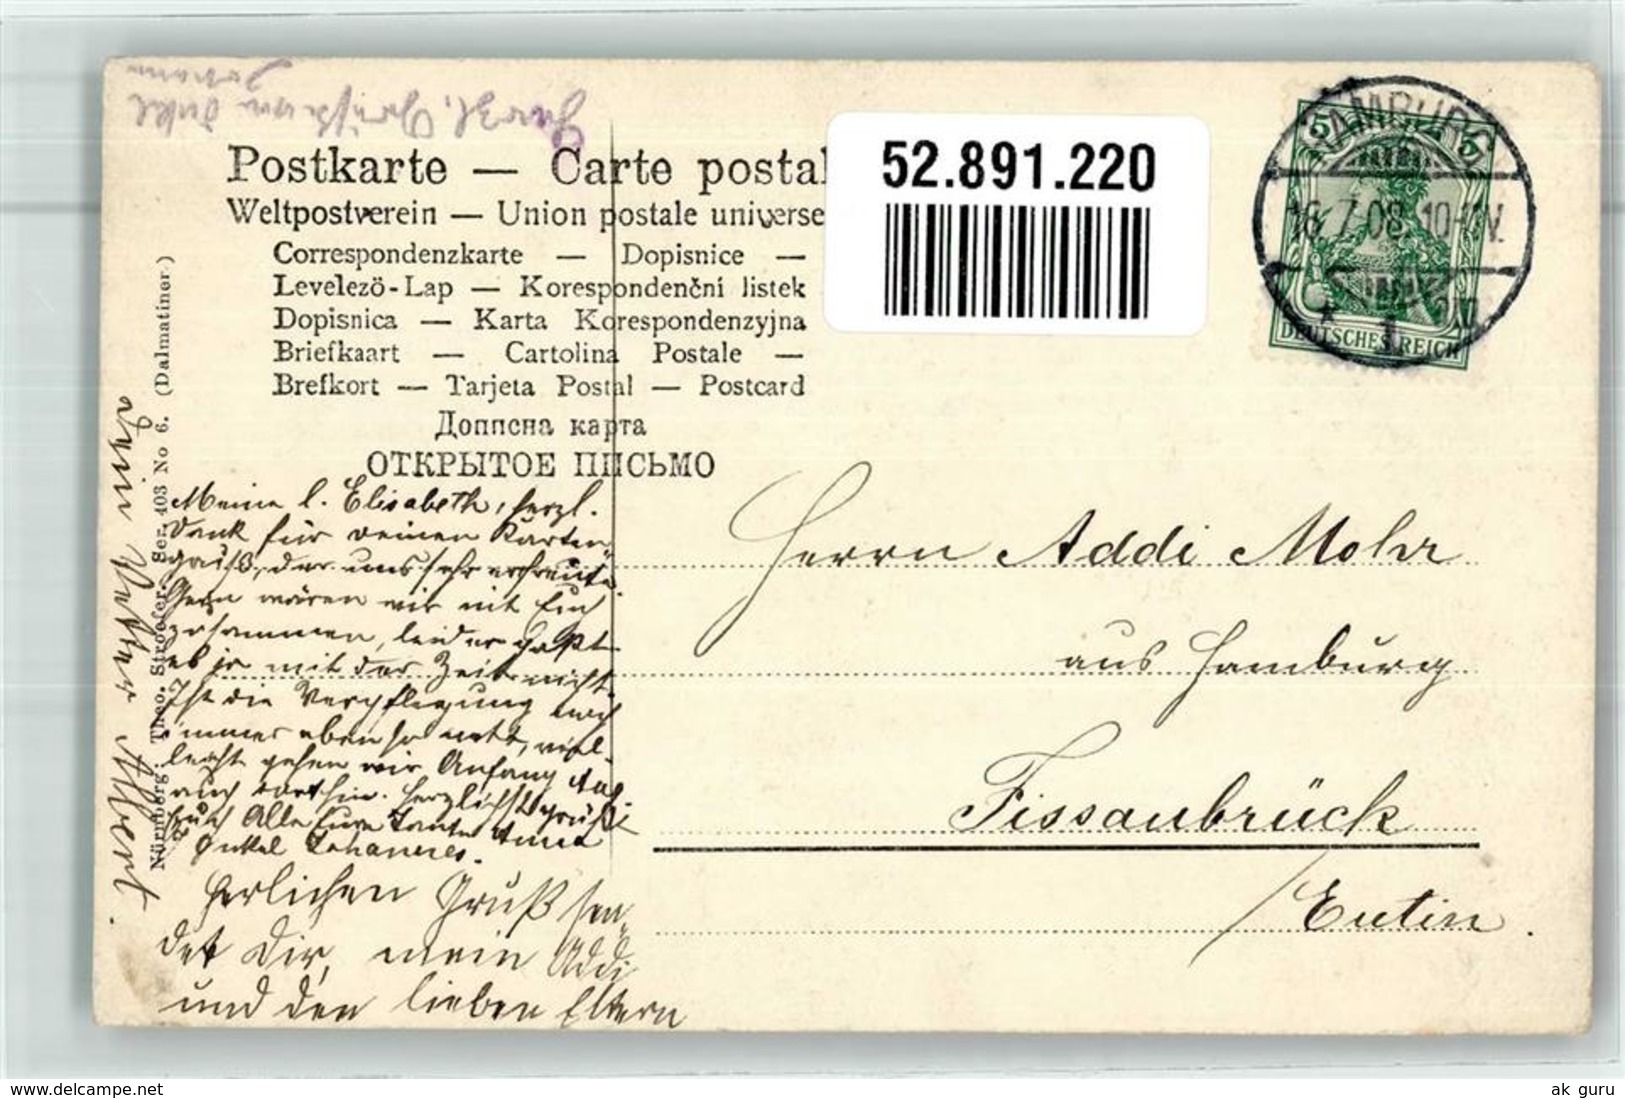 Herzl. Grüße von Onkel
Johann
Postkarte — Carte postal
Weltpostverein — Union postale universe
Correspondenzkarte — Dopisnice —
Levelező-Lap — Korespondenční listek
Dopisnica — Karta Korespondenzyjna
Briefkaart — Cartolina Postale —
Brefkort — Tarjeta Postal — Postcard
Доппсна карта
ОТКРЫТОЕ ПИСЬМО
52.891.220
HAMBURG
16.7.08. 10-11V.
* 1
5 5
DEUTSCHES REICH
Nürnberg. Theo. Stroefer. Ser. 403 No 6. (Dalmatiner)
Meine l. Elisabeth, herzl.
Dank für deinen Karten-
gruß, der uns sehr erfreute.
Gern wären wir mit Euch
zusammen, leider paßt
es ja mit der Zeit nicht.
Ist die Verpflegung noch
immer eben so nett, viel-
leicht gehen wir Anfang Aug.
auch dorthin. Herzlichst grüßt
Euch Alle Eure Tante Anna
Onkel Johannes.
Herlichen Gruß sen-
det Dir, mein Addi
und den lieben Eltern
Dein Vetter Albert.
Herrn Addi Mohr
aus Hamburg
Fissaubrück
/Eutin.
www.delcampe.net
ak guru